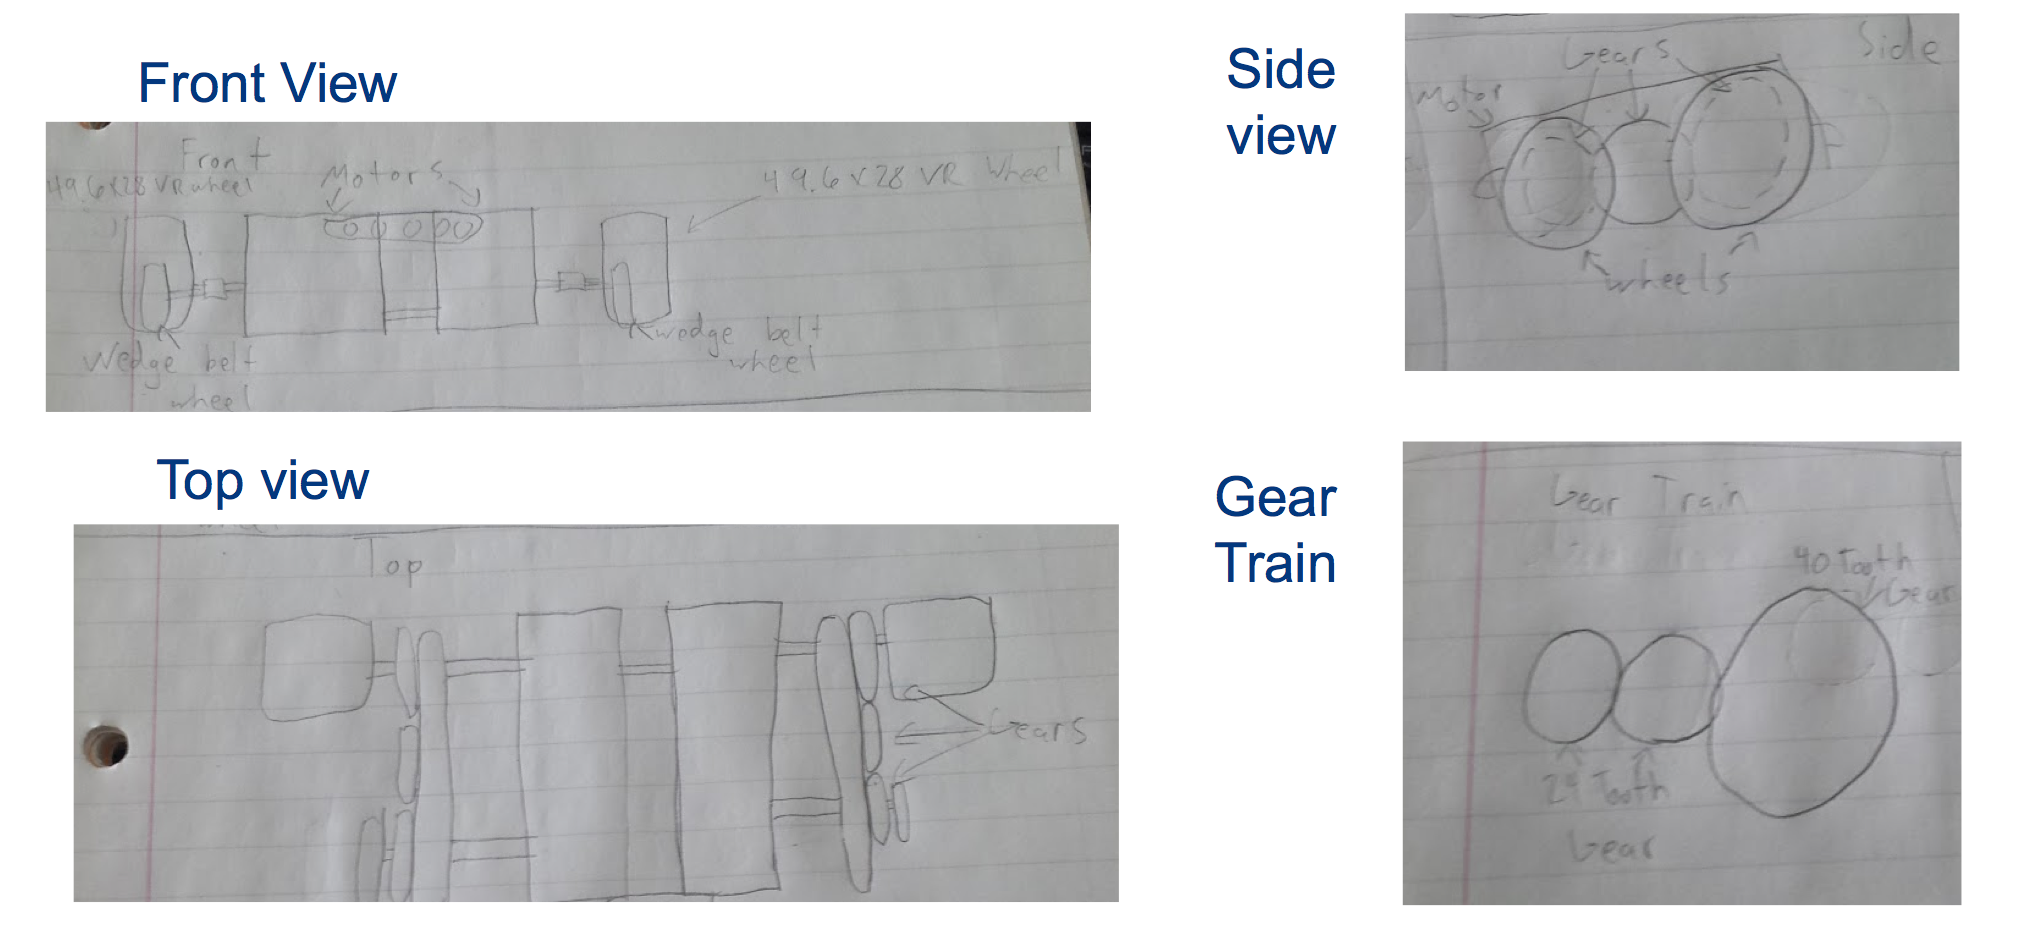 Front View
Front
49.6x28 VR wheel
Motors
49.6x28 VR Wheel
Wedge belt
wheel
wedge belt
wheel
Side
view
Gears
Side
Motor
wheels
Top view
Top
Gears
Gear
Train
Gear Train
40 Tooth
Gear
24 Tooth
Gear